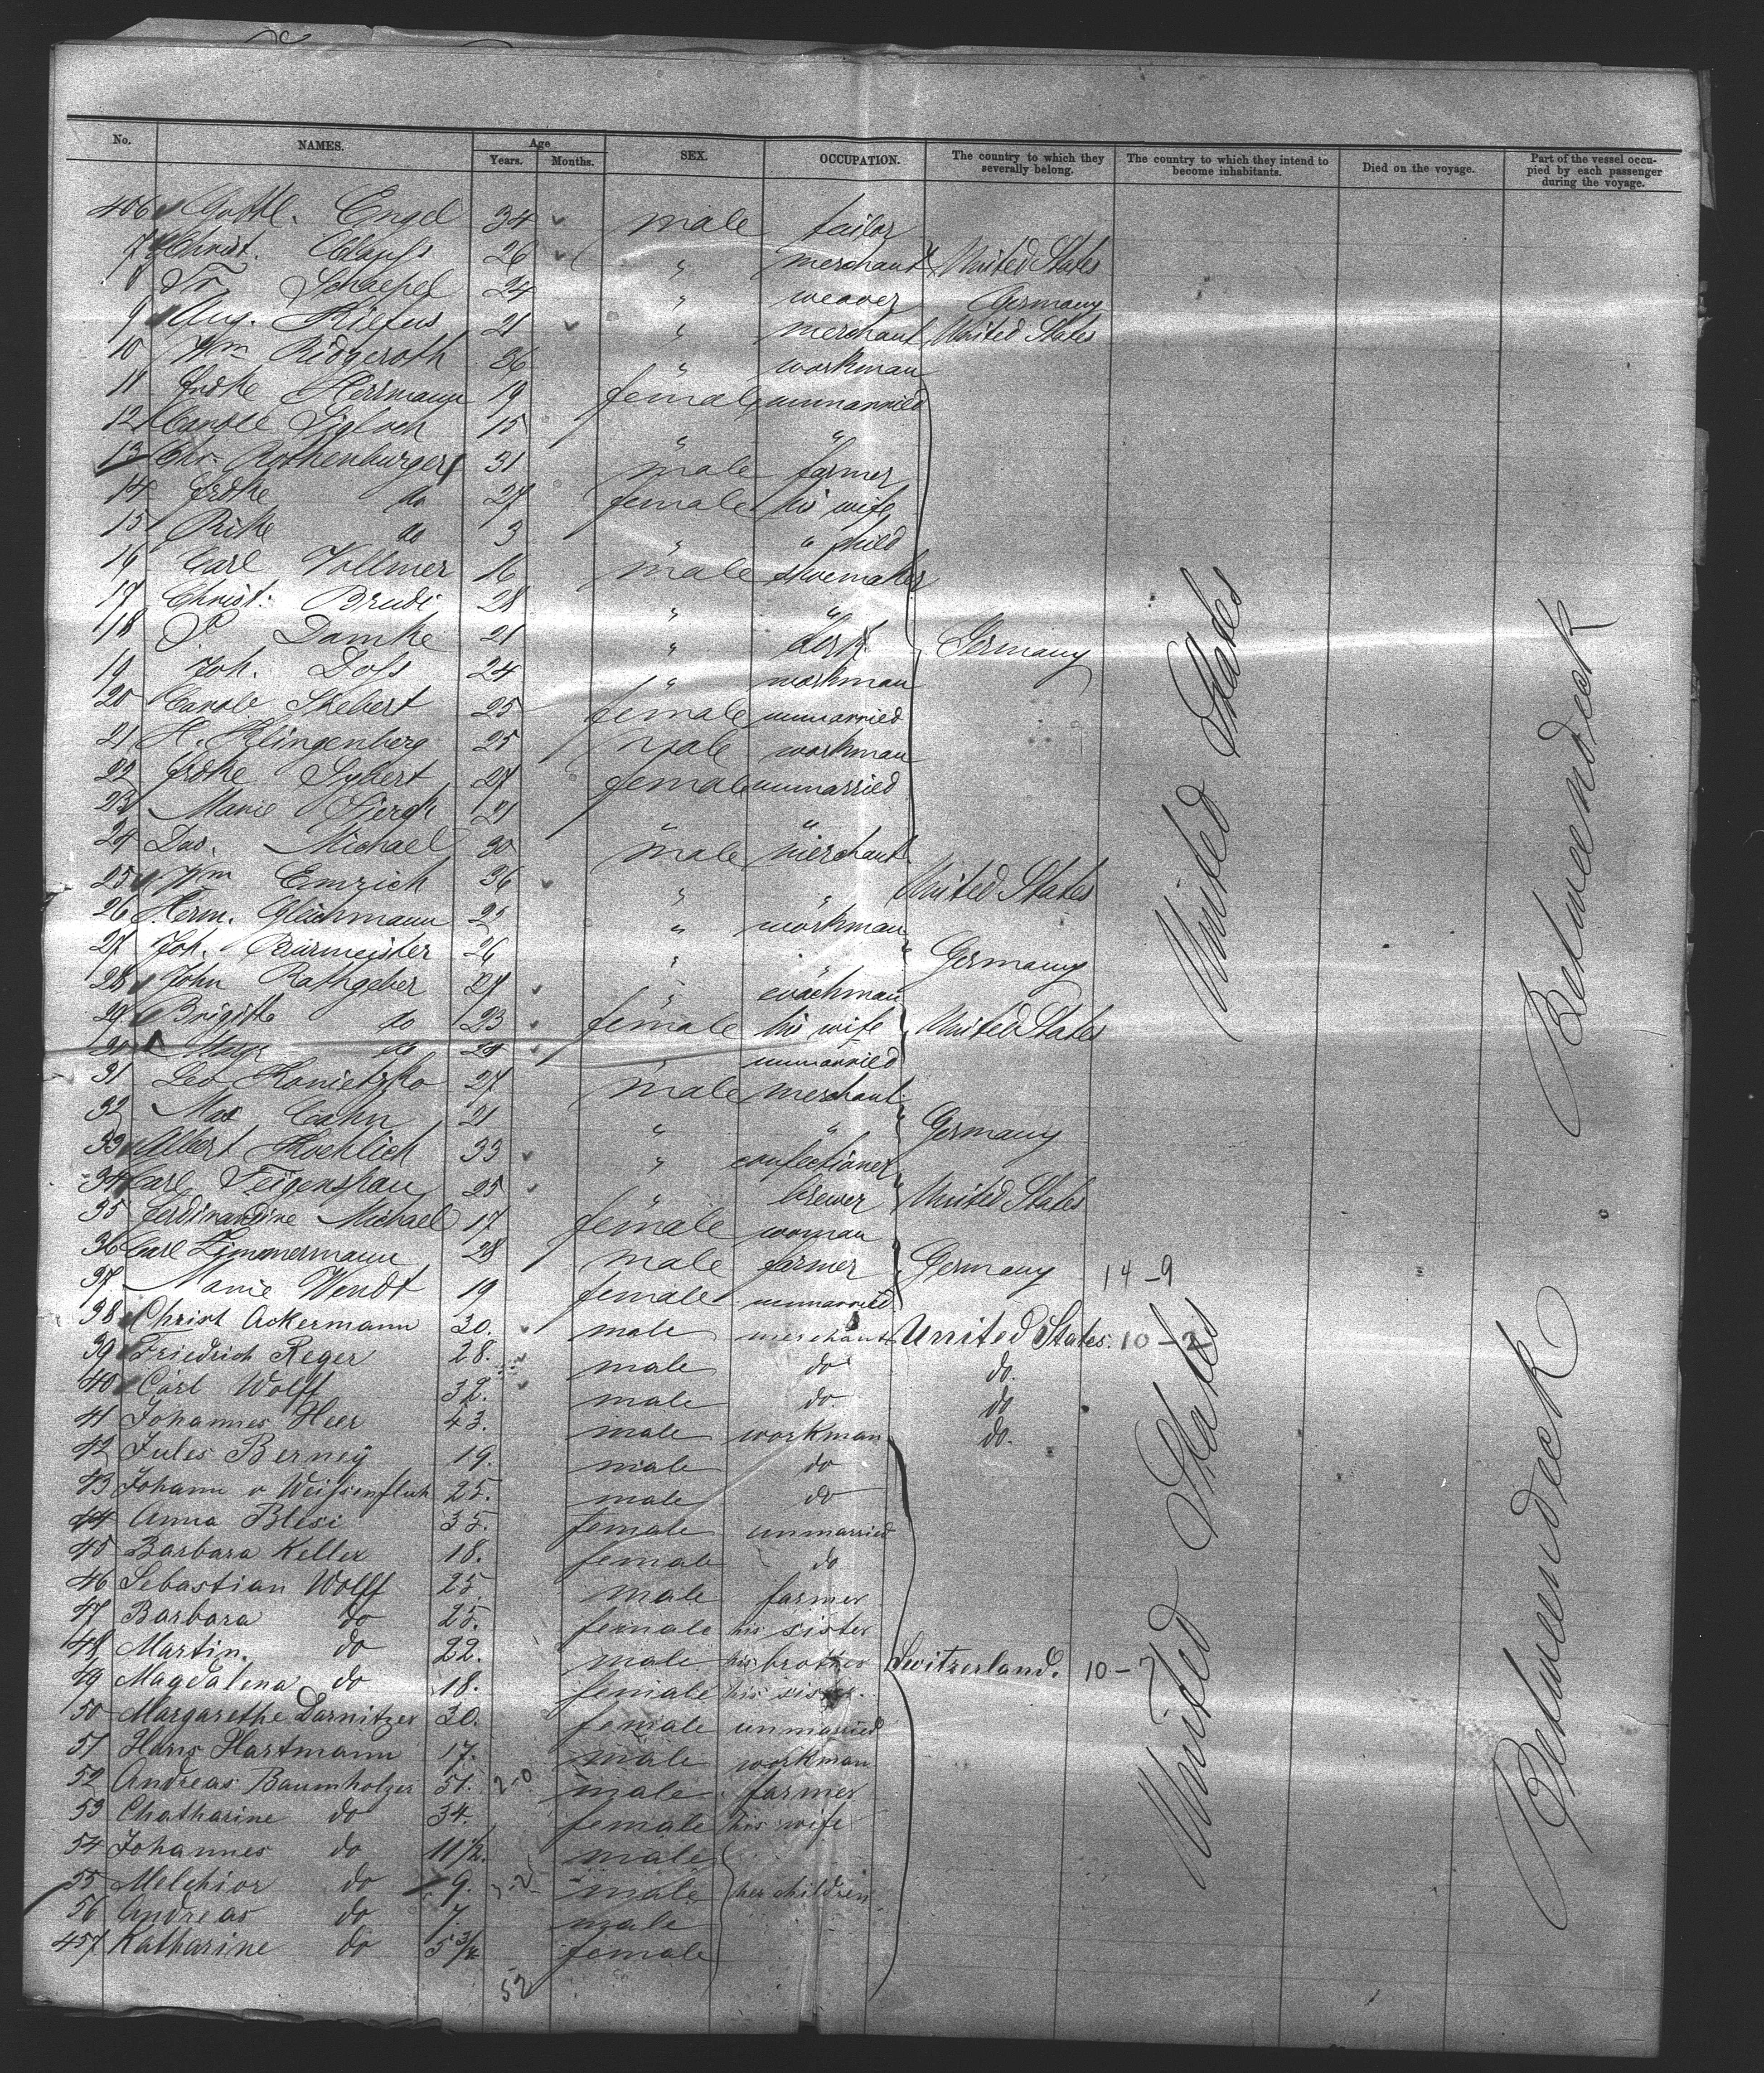 No. NAMES. Age Years. Months. SEX. OCCUPATION. The country to which they severally belong. The country to which they intend to become inhabitants. Died on the voyage. Part of the vessel occupied by each passenger during the voyage.
406 Gottl. Engel 34 male tailor
7 Christ. Clauss 26 " merchant United States
8 Fr. Schaepel 24 " weaver Germany
9 Aug. Kiefus 21 " merchant United States
10 Wm Ridgeroth 36 " workman
11 Frdke Herrmann 19 female unmarried
12 Carole Sigloch 15 " "
13 Chr. Rothenburger 31 male farmer
14 Frdke do 27 female his wife
15 Rike do 3 " " child
16 Carl Vollmer 16 male shoemaker
17 Christ. Brudi 28 " "
18 P. Damke 21 " clerk Germany
19 Joh. Doss 24 " workman
20 Carole Siebert 25 female unmarried
21 H. Klingenberg 25 male workman
22 Frdke Sybert 27 female unmarried
23 Marie 21 " "
24 Dav. Michael 30 male merchant
25 Wm Emrich 36 " " United States
26 Herm. Gleichmann 25 " workman
27 Joh. Burmeister 26 " " Germany
28 John Rathgeber 27 " coachman
29 Brigitte do 23 female his wife United States
30 Mary do 24 unmarried
31 Leo Konietzko 27 male merchant
32 Max Cahn 21 " " Germany
33 Albert Koehlich 33 " confectioner
34 Carl Feigenspan 25 " brewer United States
35 Ferdinandine Michael 17 female woman
36 Carl Zimmermann 28 male farmer Germany 14-9
37 Marie Wendt 19 female unmarried
38 Christ Ackermann 30. male merchant United States. 10-2
39 Friedrich Reger 28. male do do.
40 Carl Wolff 32. male do. do
41 Johannes Heer 43. male workman do.
42 Jules Berney 19. male do
43 Johann v Weissenfluh 25. male do
44 Anna Blesi 35. female unmarried
45 Barbara Keller 18. female do
46 Sebastian Wolff 25. male farmer
47 Barbara do 25. female his sister
48 Martin. do 22. male his brother Switzerland. 10-7
49 Magdalena do 18. female his sister.
50 Margarethe Darnitzer 30. female unmarried
51 Hans Hartmann 17. male workman
52 Andreas Baumholzer 51. 2-0 male farmer
53 Chatharine do 34. female his wife
54 Johannes do 11½. male
55 Melchior do 9. male her children
56 Andreas do 7. male
457 Katharine do 5¾ female
52
United States
Betweendeck
United States
Betweendeck